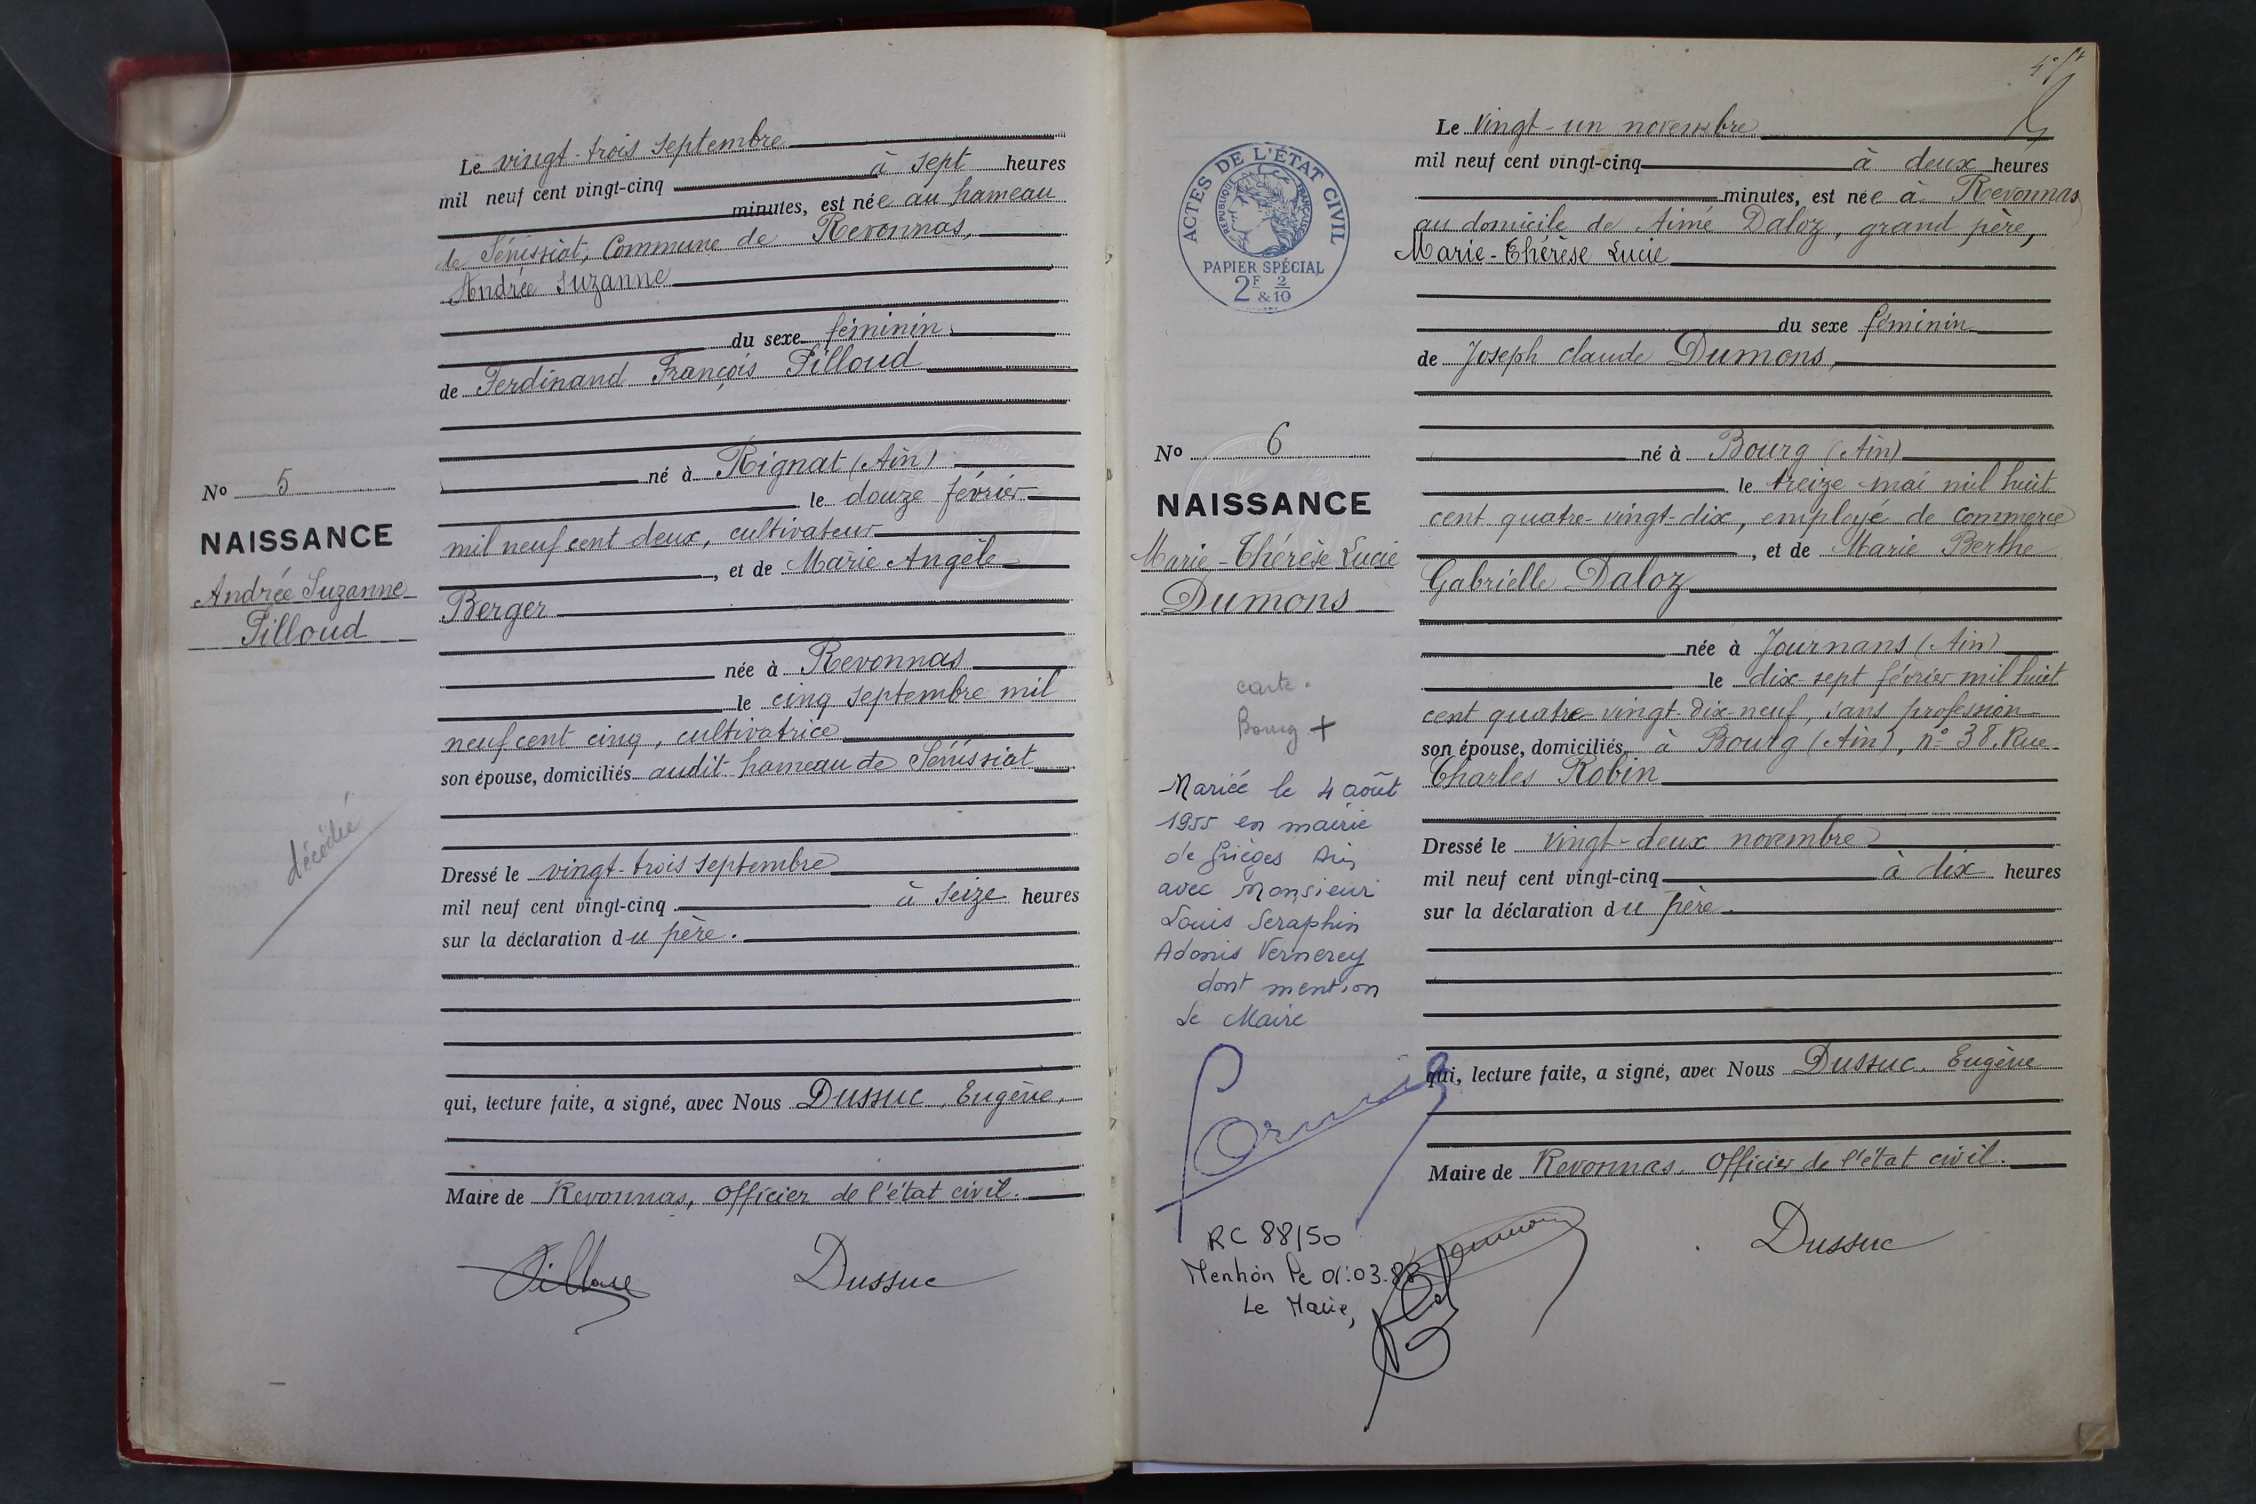 Le vingt-trois septembre
mil neuf cent vingt-cinq à sept heures
minutes, est née au hameau
de Sénissiat, Commune de Revonnas,
Andrée Suzanne
du sexe féminin
de Ferdinand François Pilloud
né à Rignat (Ain)
le douze février
mil neuf cent deux, cultivateur
, et de Marie Angèle
Berger
née à Revonnas
le cinq septembre mil
neuf cent cinq, cultivatrice
son épouse, domiciliés audit hameau de Sénissiat
Dressé le vingt-trois septembre
mil neuf cent vingt-cinq à seize heures
sur la déclaration du père.
qui, lecture faite, a signé, avec Nous Dussuc, Eugène,
Maire de Revonnas, Officier de l'état civil.
Dussuc
No 5
NAISSANCE
Andrée Suzanne
Pilloud
décédée
Le vingt-un novembre
mil neuf cent vingt-cinq à deux heures
minutes, est née à Revonnas
au domicile de Aimé Daloz, grand père,
Marie-Thérèse Lucie
du sexe féminin
de Joseph Claude Dumons,
né à Bourg (Ain)
le treize mai mil huit
cent quatre-vingt-dix, employé de commerce
, et de Marie Berthe
Gabrielle Daloz
née à Journans (Ain)
le dix sept février mil huit
cent quatre vingt-dix-neuf, sans profession
son épouse, domiciliés à Bourg (Ain), n° 38, Rue
Charles Robin
Dressé le vingt-deux novembre
mil neuf cent vingt-cinq à dix heures
sur la déclaration du père.
qui, lecture faite, a signé, avec Nous Dussuc, Eugène
Maire de Revonnas, Officier de l'état civil.
Dussuc
ACTES DE L'ÉTAT CIVIL
RÉPUBLIQUE FRANÇAISE
PAPIER SPÉCIAL
2F & 2/10
No 6
NAISSANCE
Marie-Thérèse Lucie
Dumons
carte.
Bourg +
Mariée le 4 août
1955 en mairie
de Grièges Ain
avec Monsieur
Louis Seraphin
Adonis Vernerey
dont mention
Le Maire
RC 88/50
Mention le 01.03.88
Le Maire,